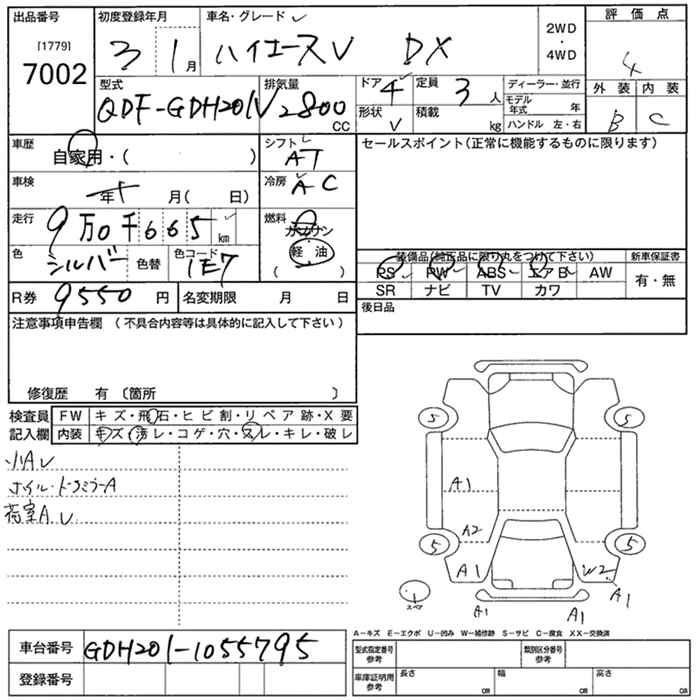 出品番号 初度登録年月 車名・グレード 評価点
[1779]
7002 3 1月 ハイエースV DX 2WD・4WD 4
型式 排気量 ドア 定員 ディーラー・並行 外装 内装
QDF-GDH201V 2800CC 4 3人 モデル年式 年 B C
形状 V 積載 kg ハンドル 左・右
車歴 自家用・( ) シフト AT セールスポイント(正常に機能するものに限ります)
車検 年 月( 日) 冷房 AC
走行 9万0千665km 燃料 ガソリン
軽油
( )
色 シルバー 色替 色コード 1E7
装備品(純正品に限り丸をつけて下さい) 新車保証書
PS PW ABS エアB AW 有・無
SR ナビ TV カワ
R券 9550円 名変期限 月 日 後日品
注意事項申告欄(不具合内容等は具体的に記入して下さい)
修復歴 有 〔箇所 〕
検査員記入欄 FW キズ・飛石・ヒビ割・リペア跡・X要
内装 キズ・汚レ・コゲ・穴・スレ・キレ・破レ
小A.U
ホイル・ドアミラーA
荷室A.U
5 5
A1
A2
5 5
A1 W2
スペア
A1 A1 A1
A－キズ E－エクボ U－凹み W－補修跡 S－サビ C－腐食 XX－交換済
車台番号 GDH201-1055795
登録番号
型式指定番号 参考 類別区分番号 参考
車庫証明用 参考 長さ cm 幅 cm 高さ cm